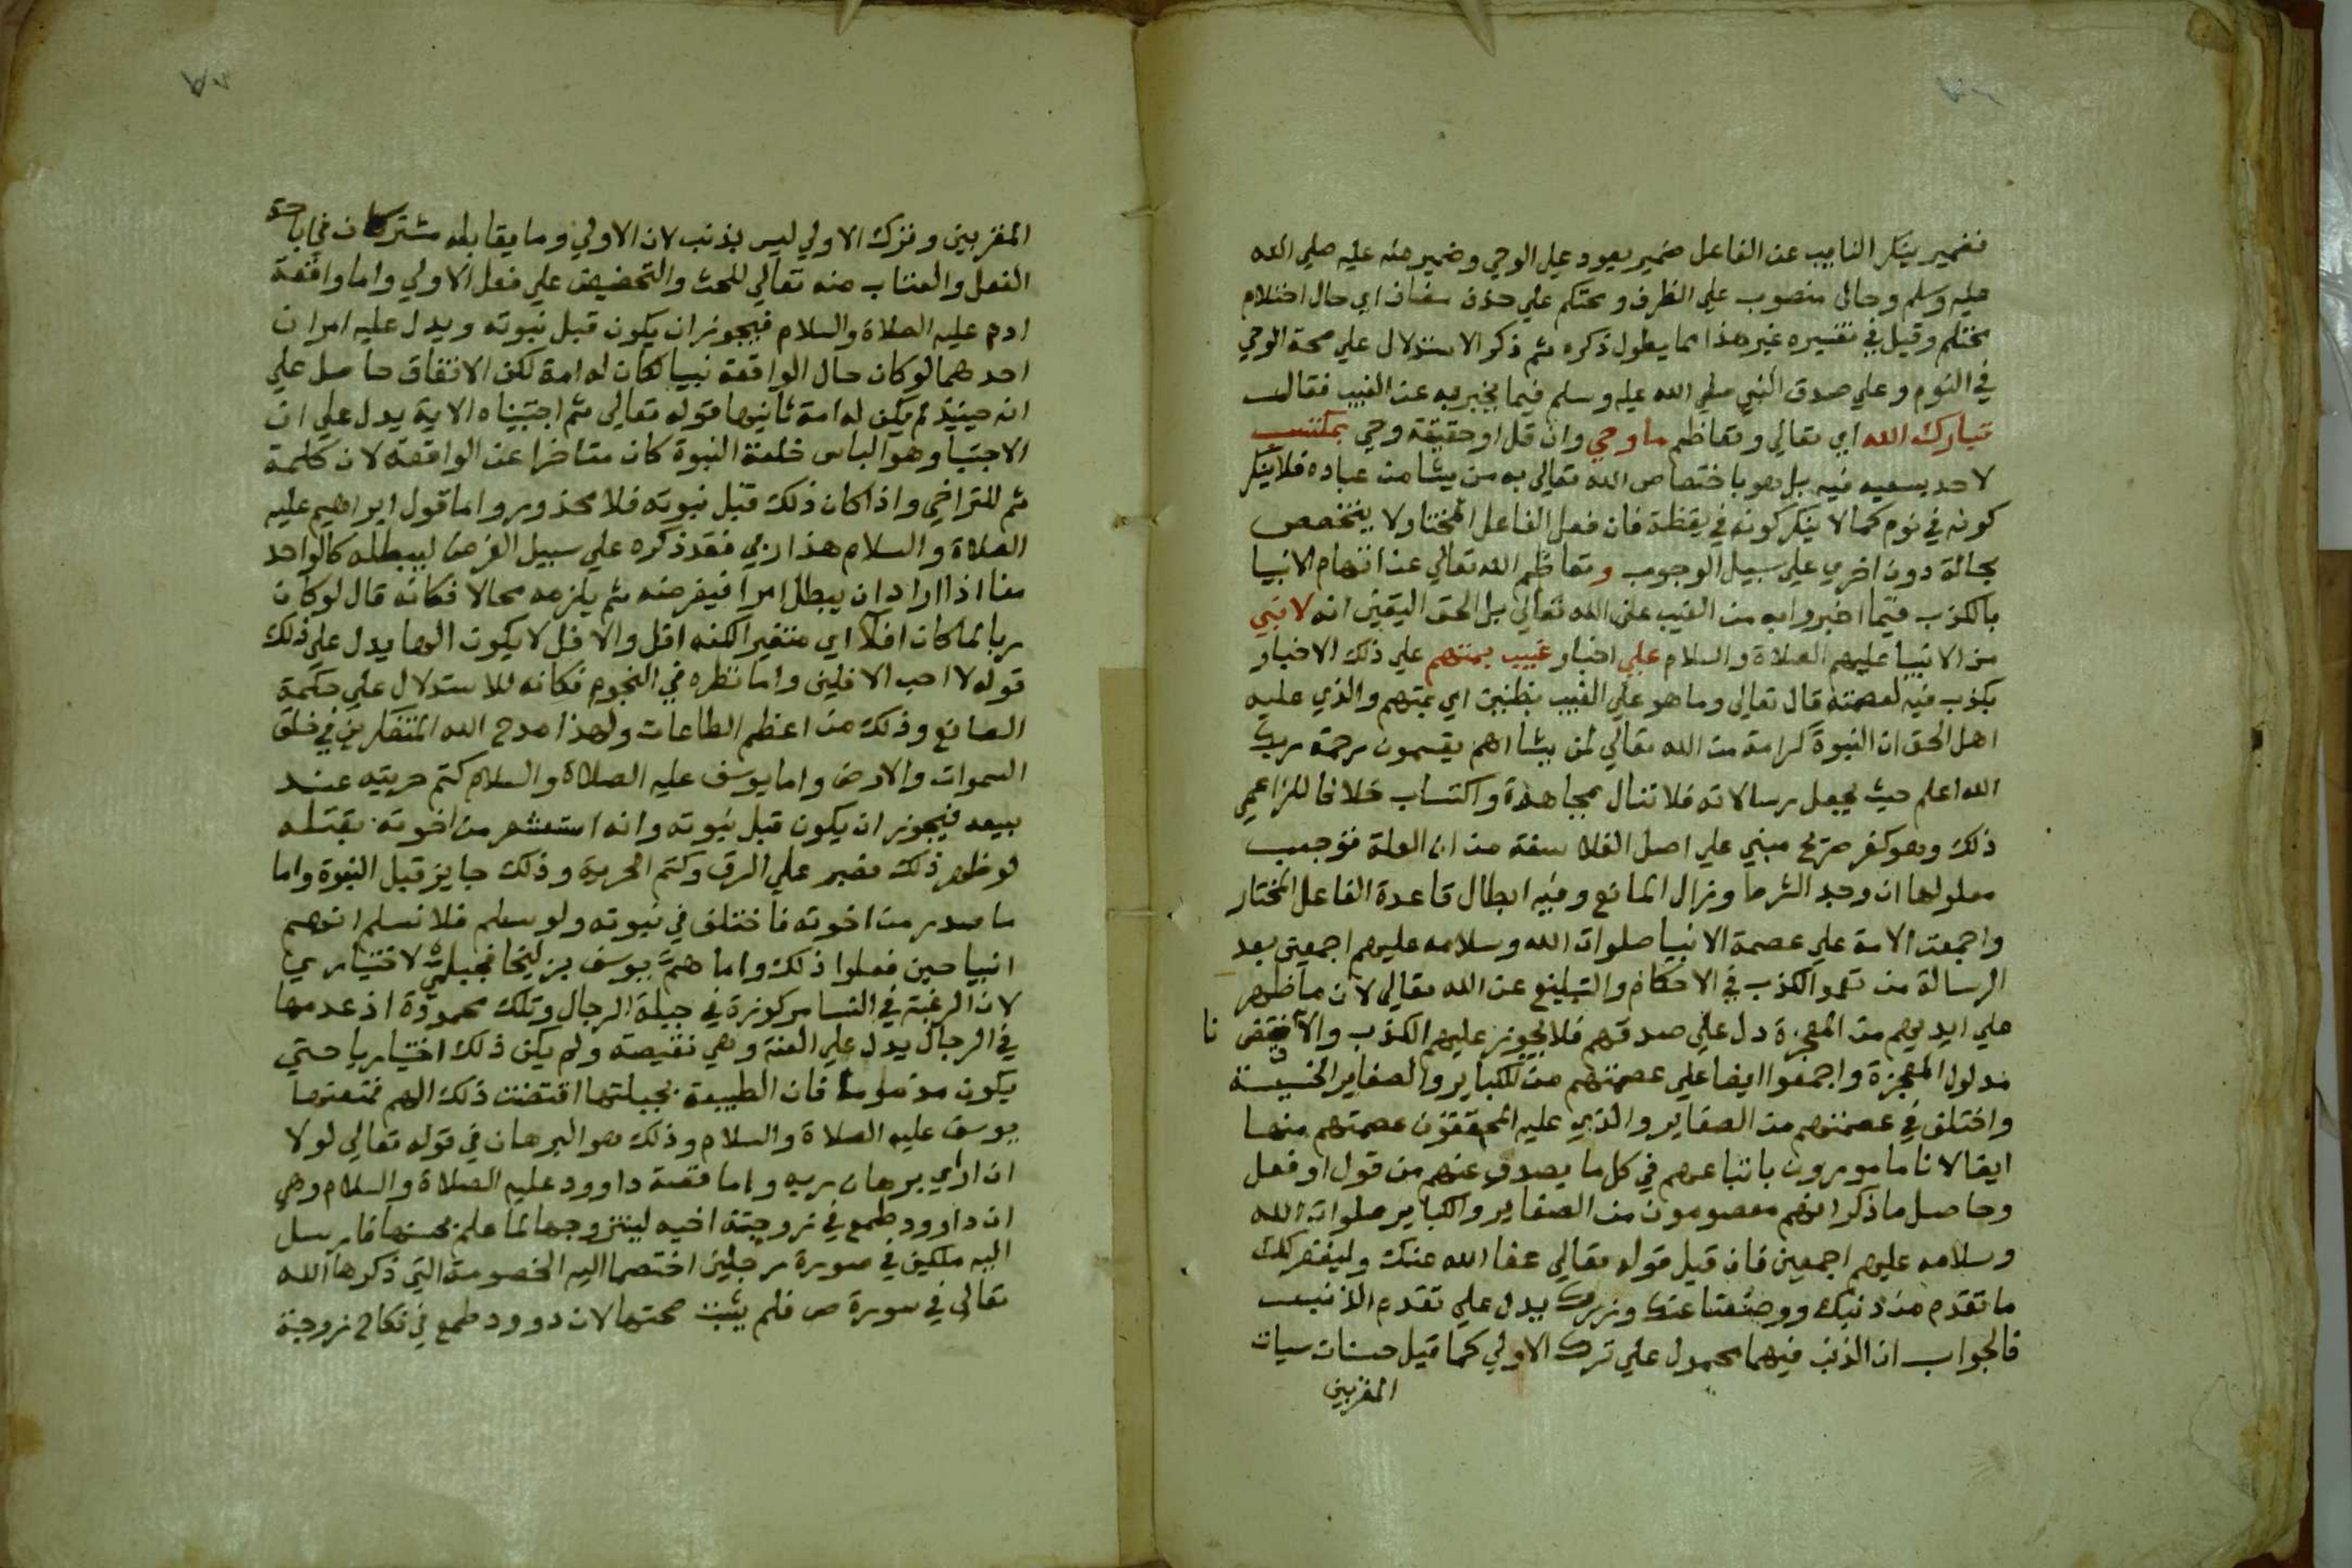 فضمير ينكر النايب عن الفاعل ضمير يعود علي الوحي وضمير منه عليه صلي الله
عليه وسلم وحال منصوب علي الظرف ومحتلم علي حذف مضاف اي حال احتلام
محتلم وقيل في تفسيره غير هذا مما يطول ذكره ثم ذكر الاستدلال علي صحة الوحي
في النوم وعلي صدق النبي صلي الله عليه وسلم فيما يخبر به عن الغيب فقال
تبارك الله اي تعالي وتعاظم ما وحي وان قل او حقيقة وحي بمكتسب
لاحد يسعيه فيه بل هو باختصاص الله تعالي به من يشا من عباده فلا ينكر
كونه في نوم كما لا ينكر كونه في يقظة فان فعل الفاعل المختار لا يتخصص
بحالة دون اخري علي سبيل الوجوب وتعاظم الله تعالي عن اتهام الانبيا
بالكذب فيما اخبروا به من الغيب علي الله تعالي بل الحق اليقين انه لا نبي
من الانبيا عليهم الصلاة والسلام علي اخبار غيب بمتهم علي ذلك الاخبار
بكذب فيه لعصمته قال تعالي وما هو علي الغيب بظنين اي بمتهم والذي عليه
اهل الحق ان النبوة كرامة من الله تعالي لمن يشا اهم يقسمون رحمة ربك
الله اعلم حيث يجعل رسالاته فلا تنال بمجاهدة واكتساب خلافا للزاعمي
ذلك وهو كفر صريح مبني علي اصل الفلاسفة من ان العلة توجب
معلولها ان وجد الشرط وزال المانع وفيه ابطال قاعدة الفاعل المختار
واجمعت الامة علي عصمة الانبيا صلوات الله وسلامه عليهم اجمعين بعد
الرسالة من تعمد الكذب في الاحكام والتبليغ عن الله تعالي لان ما ظهر
علي ايديهم من المعجزة دل علي صدقهم فلا يجوز عليهم الكذب والا نا
مدلول المعجزة واجمعوا ايضا علي عصمتهم من الكباير والصغاير الخسيسة
واختلف في عصمتهم من الصغاير والذي عليه المحققون عصمتهم منها
ايضا لانا مامورون باتباعهم في كل ما يصدر عنهم من قول او فعل
وحاصل ما ذكر انهم معصومون من الصغاير والكباير صلوات الله
وسلامه عليهم اجمعين فان قيل قوله تعالي عفا الله عنك وليغفر لك
ما تقدم من ذنبك ووضعنا عنك وزرك يدل علي تقدم الذنب
فالجواب ان الذنب فيهما محمول علي ترك الاولي كما قيل حسنات سيات
المقربين
المقربين وترك الاولي ليس بذنب لان الاولي وما يقابله مشتركان في اباحة
الفعل والعتاب منه تعالي للحث والتحضيض علي فعل الاولي واما واقعة
ادم عليه الصلاة والسلام فيجوز ان يكون قبل نبوته ويدل عليه امران
احدهما لو كان حال الواقعة نبيا لكان له امة لكن الاتفاق حاصل علي
انه حينيذ لم يكن له امة ثانيها قوله تعالي ثم اجتبيناه الاية يدل علي ان
الاجتبا وهو الباس خلعة النبوة كان متاخرا عن الواقعة لان كلمة
ثم للتراخي واذا كان ذلك قبل نبوته فلا محذور واما قول ابراهيم عليه
الصلاة والسلام هذا ربي فقد ذكره علي سبيل الفرض ليبطله كالواحد
منا اذا اراد ان يبطل امرا فيفرضه ثم يلزمه محالا فكانه قال لو كان
ربا لما كان افلا اي متغيرا لكنه افل والافل لا يكون الها يدل علي ذلك
قوله لا احب الافلين واما نظره في النجوم فكانه للاستدلال علي حكمة
الصانع وذلك من اعظم الطاعات ولهذا مدح الله المتفكرين في خلق
السموات والارض واما يوسف عليه الصلاة والسلام كتم حريته عند
بيعه فيجوز ان يكون قبل نبوته وانه استشعر من اخوته بقتله
لو ظهر ذلك فصبر علي الرق وكتم الحرية وذلك جايز قبل النبوة واما
ما صدر من اخوته فاختلف في نبوته ولو سلم فلا نسلم انهم
انبيا حين فعلوا ذلك واما هم يوسف بزليخا فجبلي لا اختياري
لان الرغبة في النسا مركوزة في جبلة الرجال وتلك محمودة اذ عدمها
في الرجال يدل علي العنة وهي نقيصة ولم يكن ذلك اختياريا حتي
يكون مذموما فان الطبيعة بجبلتها اقتضت ذلك الهم فمنعتها
يوسف عليه الصلاة والسلام وذلك هو البرهان في قوله تعالي لولا
ان اراي برهان ربه واما قصة داوود عليه الصلاة والسلام وهي
ان داوود طمع في زوجته اخيه ليتزوجها لما علم بحسنها فارسل
اليه ملكين في صورة رجلين اختصما اليه الخصومة التي ذكرها الله
تعالي في سورة ص فلم يثبت صحتها لان دوود طمع في نكاح زوجة